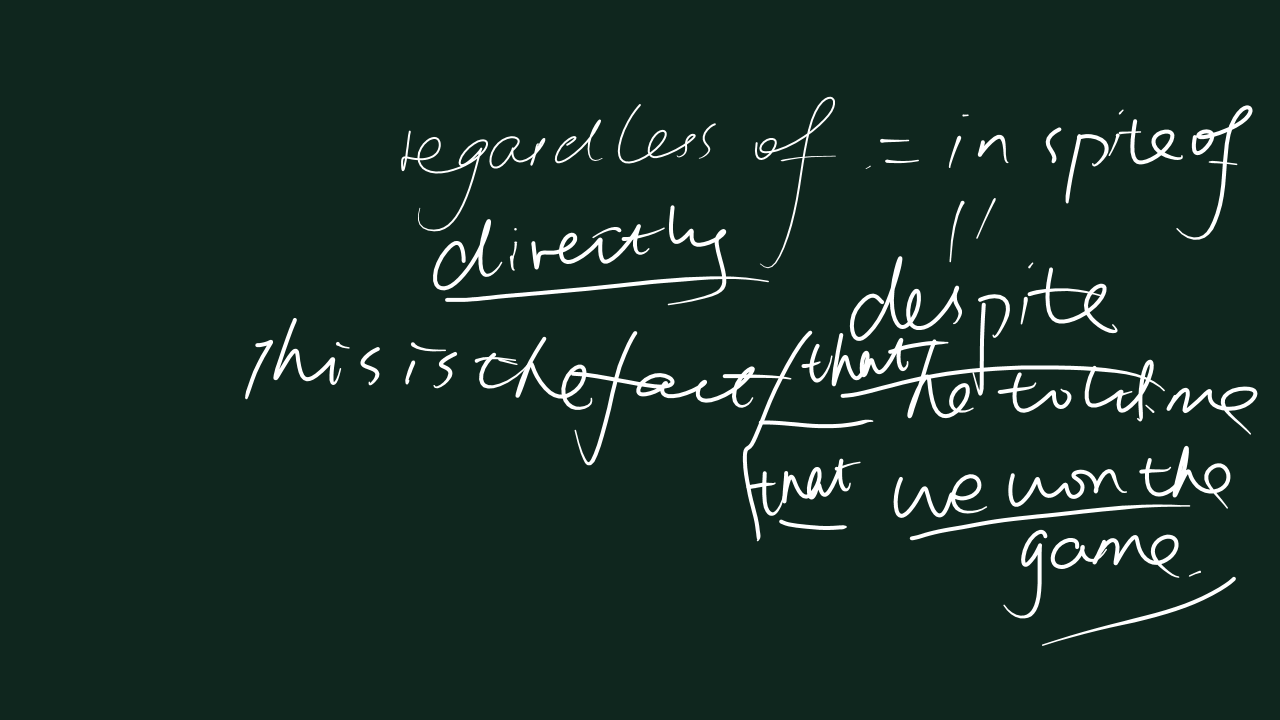 regardless of = in spite of
directly
"
despite
This is the fact that he told me
that we won the
game.